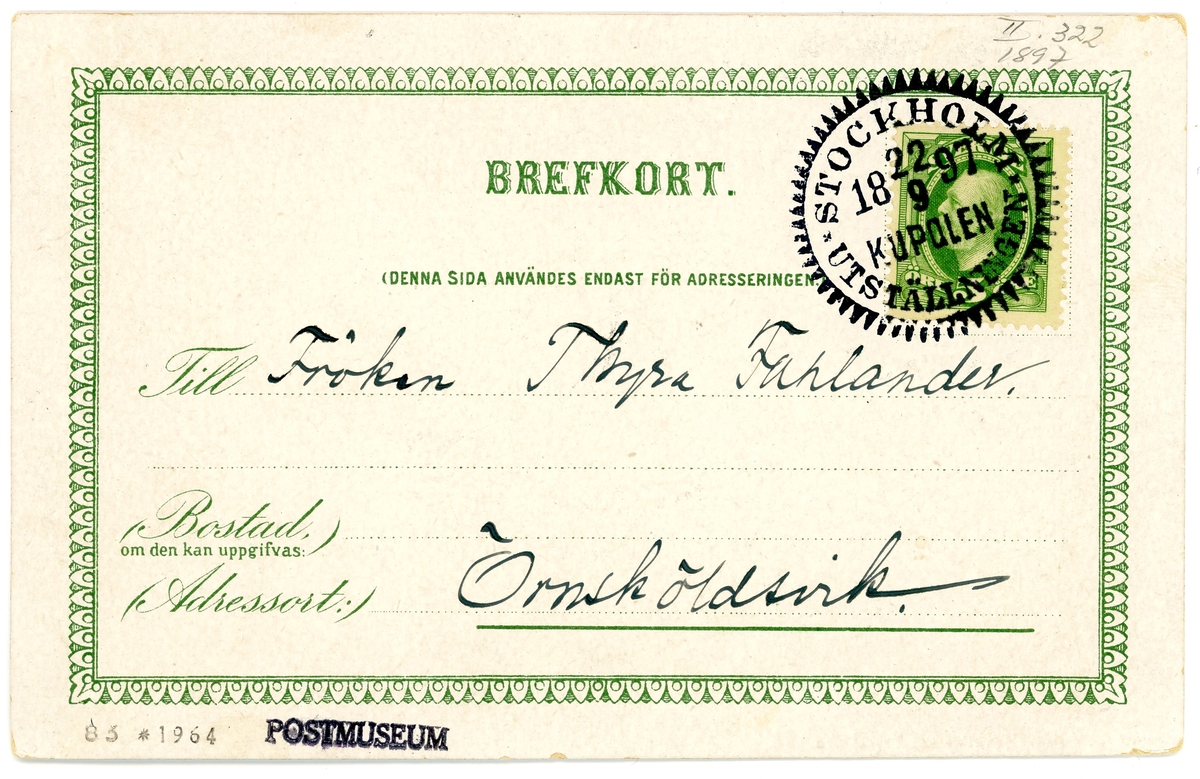 II. 322
1897
STOCKHOLM
22
18 97
9
KUPOLEN
* UTSTÄLLNINGEN
BREFKORT.
(DENNA SIDA ANVÄNDES ENDAST FÖR ADRESSERINGEN
Till Fröken Thyra Fahlander.
(Bostad,)
om den kan uppgifvas:
(Adressort:) Örnsköldsvik.
83 * 1964 POSTMUSEUM